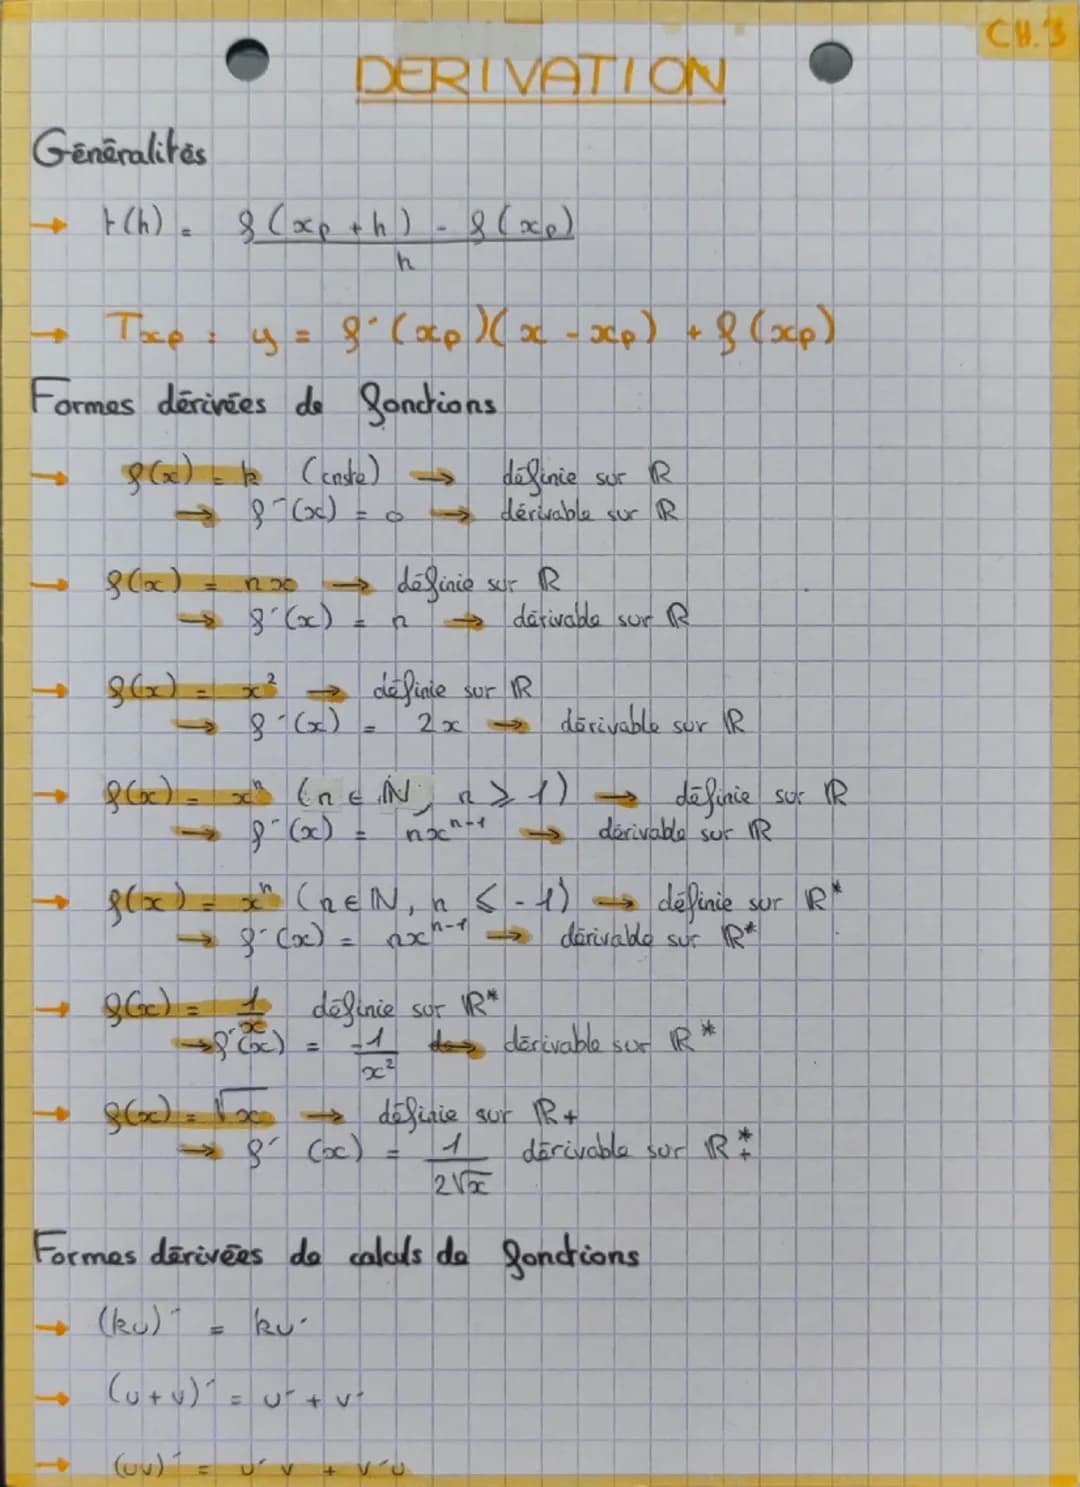 CH.3
DERIVATION
Généralités
→ t(h) = f(xp + h) - f(xp)
h
→ Txp : y = f'(xp)(x - xp) + f(xp)
Formes dérivées de fonctions
→ f(x) = k (cnste) → définie sur ℝ
→ f'(x) = 0 → dérivable sur ℝ
→ f(x) = nx → définie sur ℝ
→ f'(x) = n → dérivable sur ℝ
→ f(x) = x² → définie sur ℝ
→ f'(x) = 2x → dérivable sur ℝ
→ f(x) = xⁿ (n ∈ ℕ, n ⩾ 1) → définie sur ℝ
→ f'(x) = nxⁿ⁻¹ → dérivable sur ℝ
→ f(x) = xⁿ (n ∈ ℕ, n ⩽ -1) → définie sur ℝ*
→ f'(x) = nxⁿ⁻¹ → dérivable sur ℝ*
→ f(x) = 1/x définie sur ℝ*
→ f'(x) = -1/x² → dérivable sur ℝ*
→ f(x) = √x → définie sur ℝ+
→ f'(x) = 1/2√x dérivable sur ℝ*+
Formes dérivées de calculs de fonctions
→ (ku)' = ku'
→ (u+v)' = u' + v'
→ (uv)' = u'v + v'u